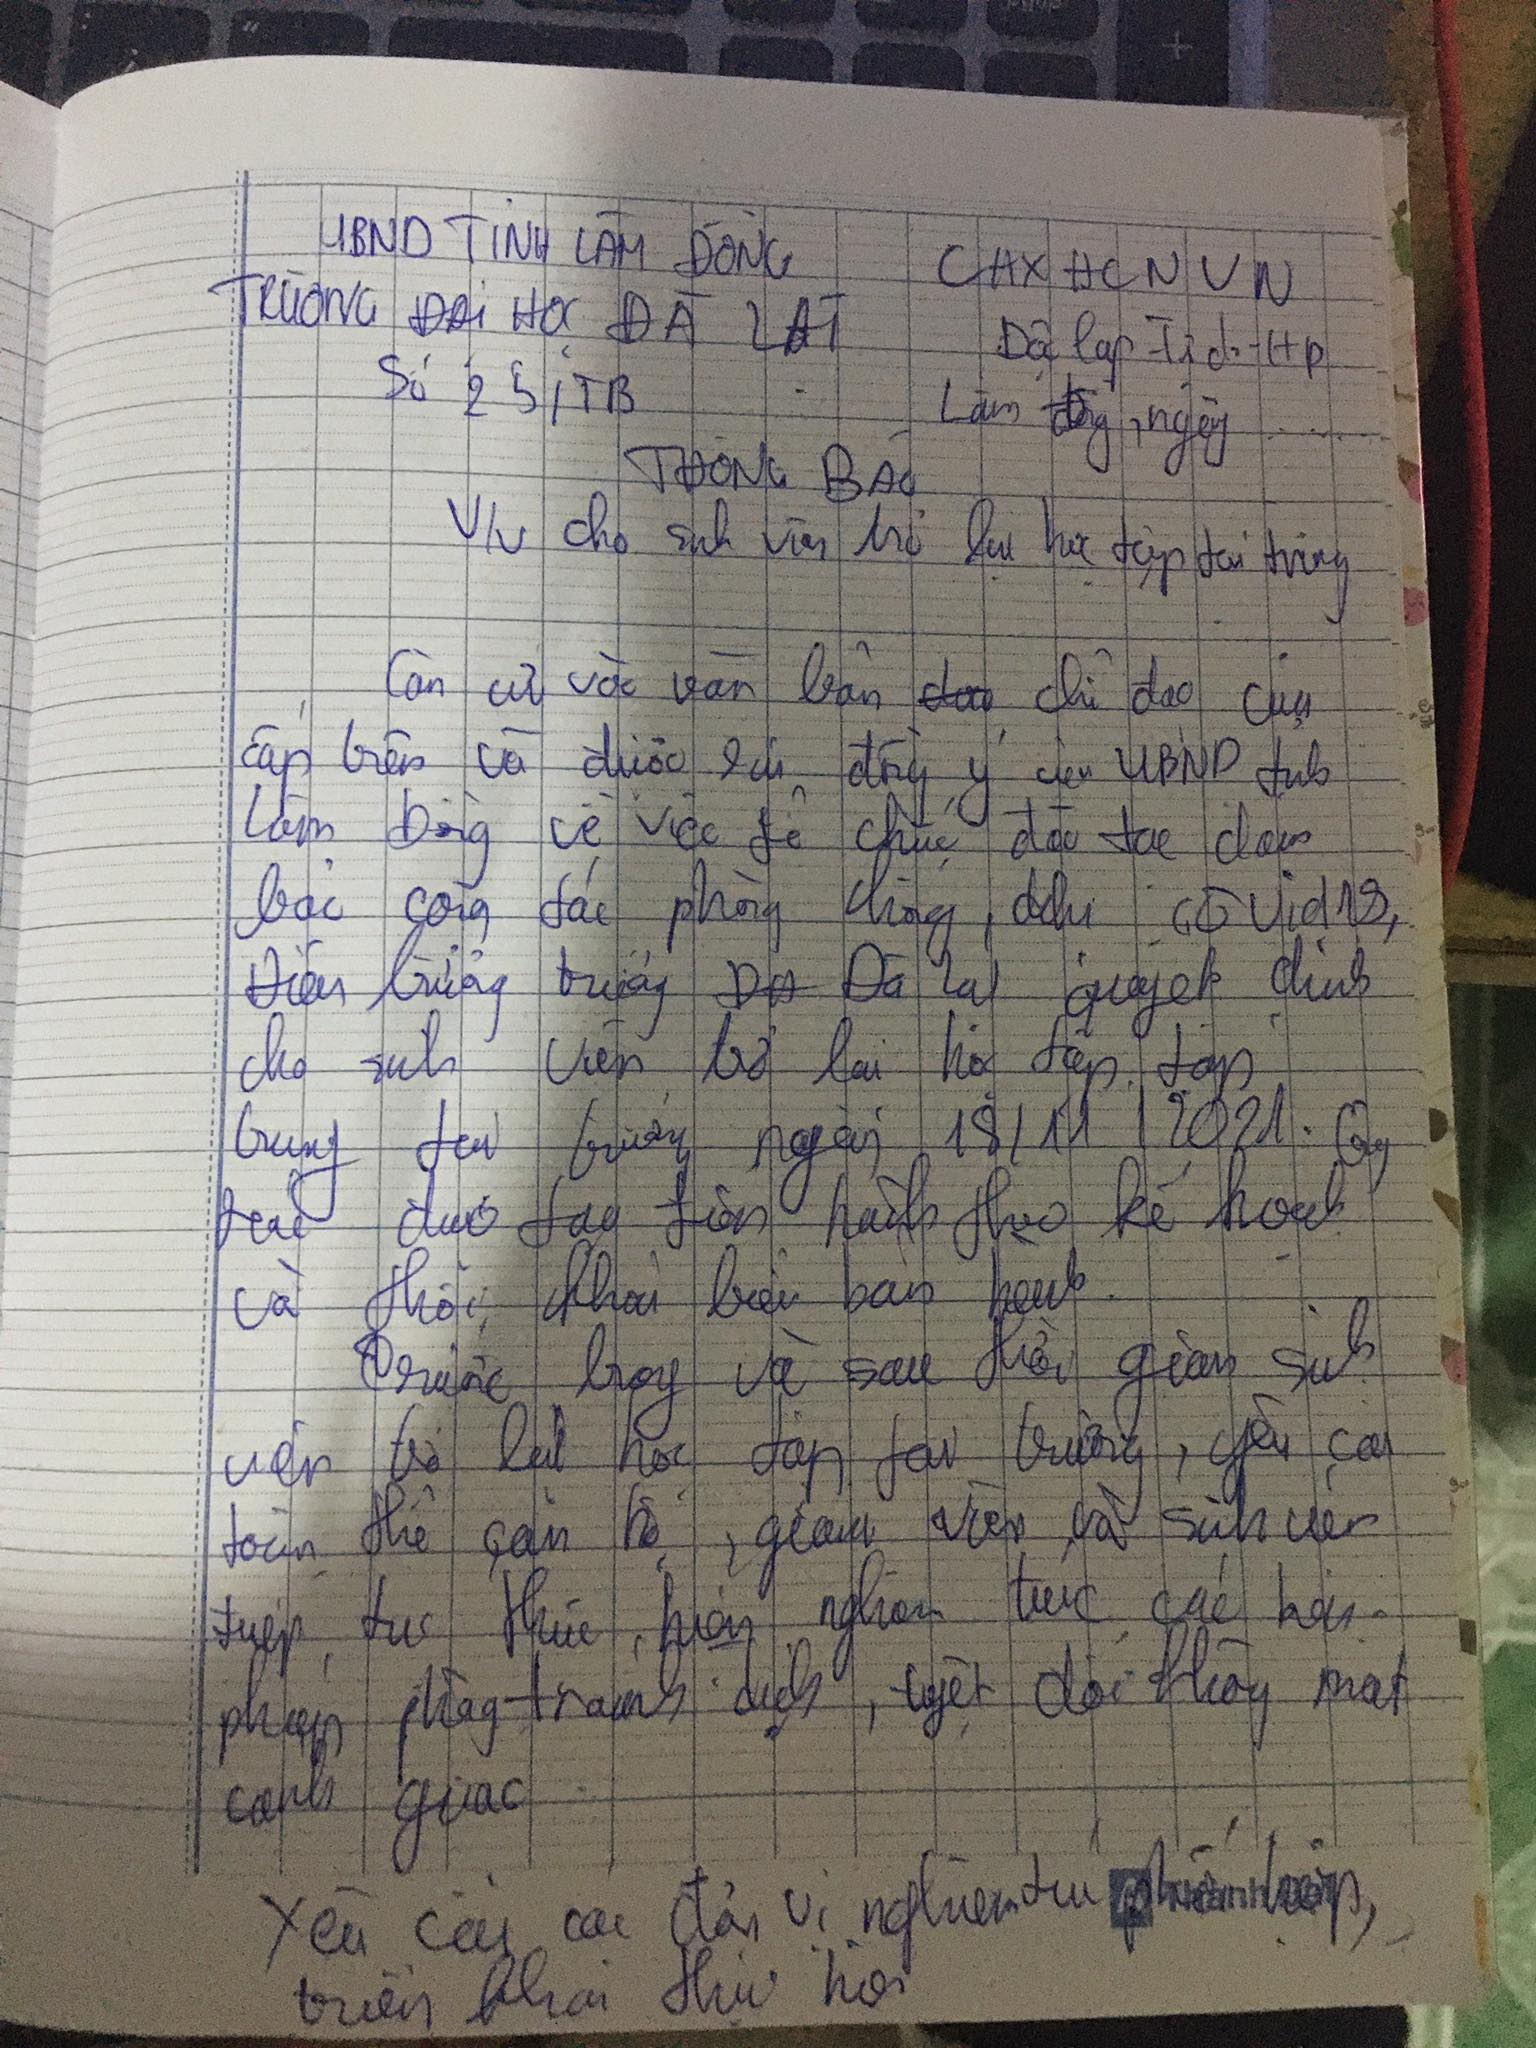 UBND TỈNH LÂM ĐỒNG
CHXHCNVN
TRƯỜNG ĐẠI HỌC ĐÀ LẠT
Độc lập - Tự do - HP
Số 25/TB
Lâm đồng, ngày ......
THÔNG BÁO
V/v cho sinh viên trở lại học tập tại trường
Căn cứ vào văn bản chỉ đạo của
cấp trên và được sự đồng ý của UBND tỉnh
Lâm Đồng về việc tổ chức đào tạo đảm
bảo công tác phòng chống dịch covid19,
Hiệu trưởng trường ĐH Đà Lạt quyết định
cho sinh viên trở lại học tập tập
trung tại trường ngày 18/11/2021.
được tiến hành theo kế hoạch
và thời khóa biểu ban hành.
Trước trong và sau thời gian sinh
viên trở lại học tập tại trường, yêu cầu
toàn thể cán bộ, giảng viên và sinh viên
tiếp tục thực hiện nghiêm túc các biện
pháp phòng tránh dịch, tuyệt đối không mất
cảnh giác
Yêu cầu các đơn vị nghiêm túc phối hợp,
triển khai thực hiện